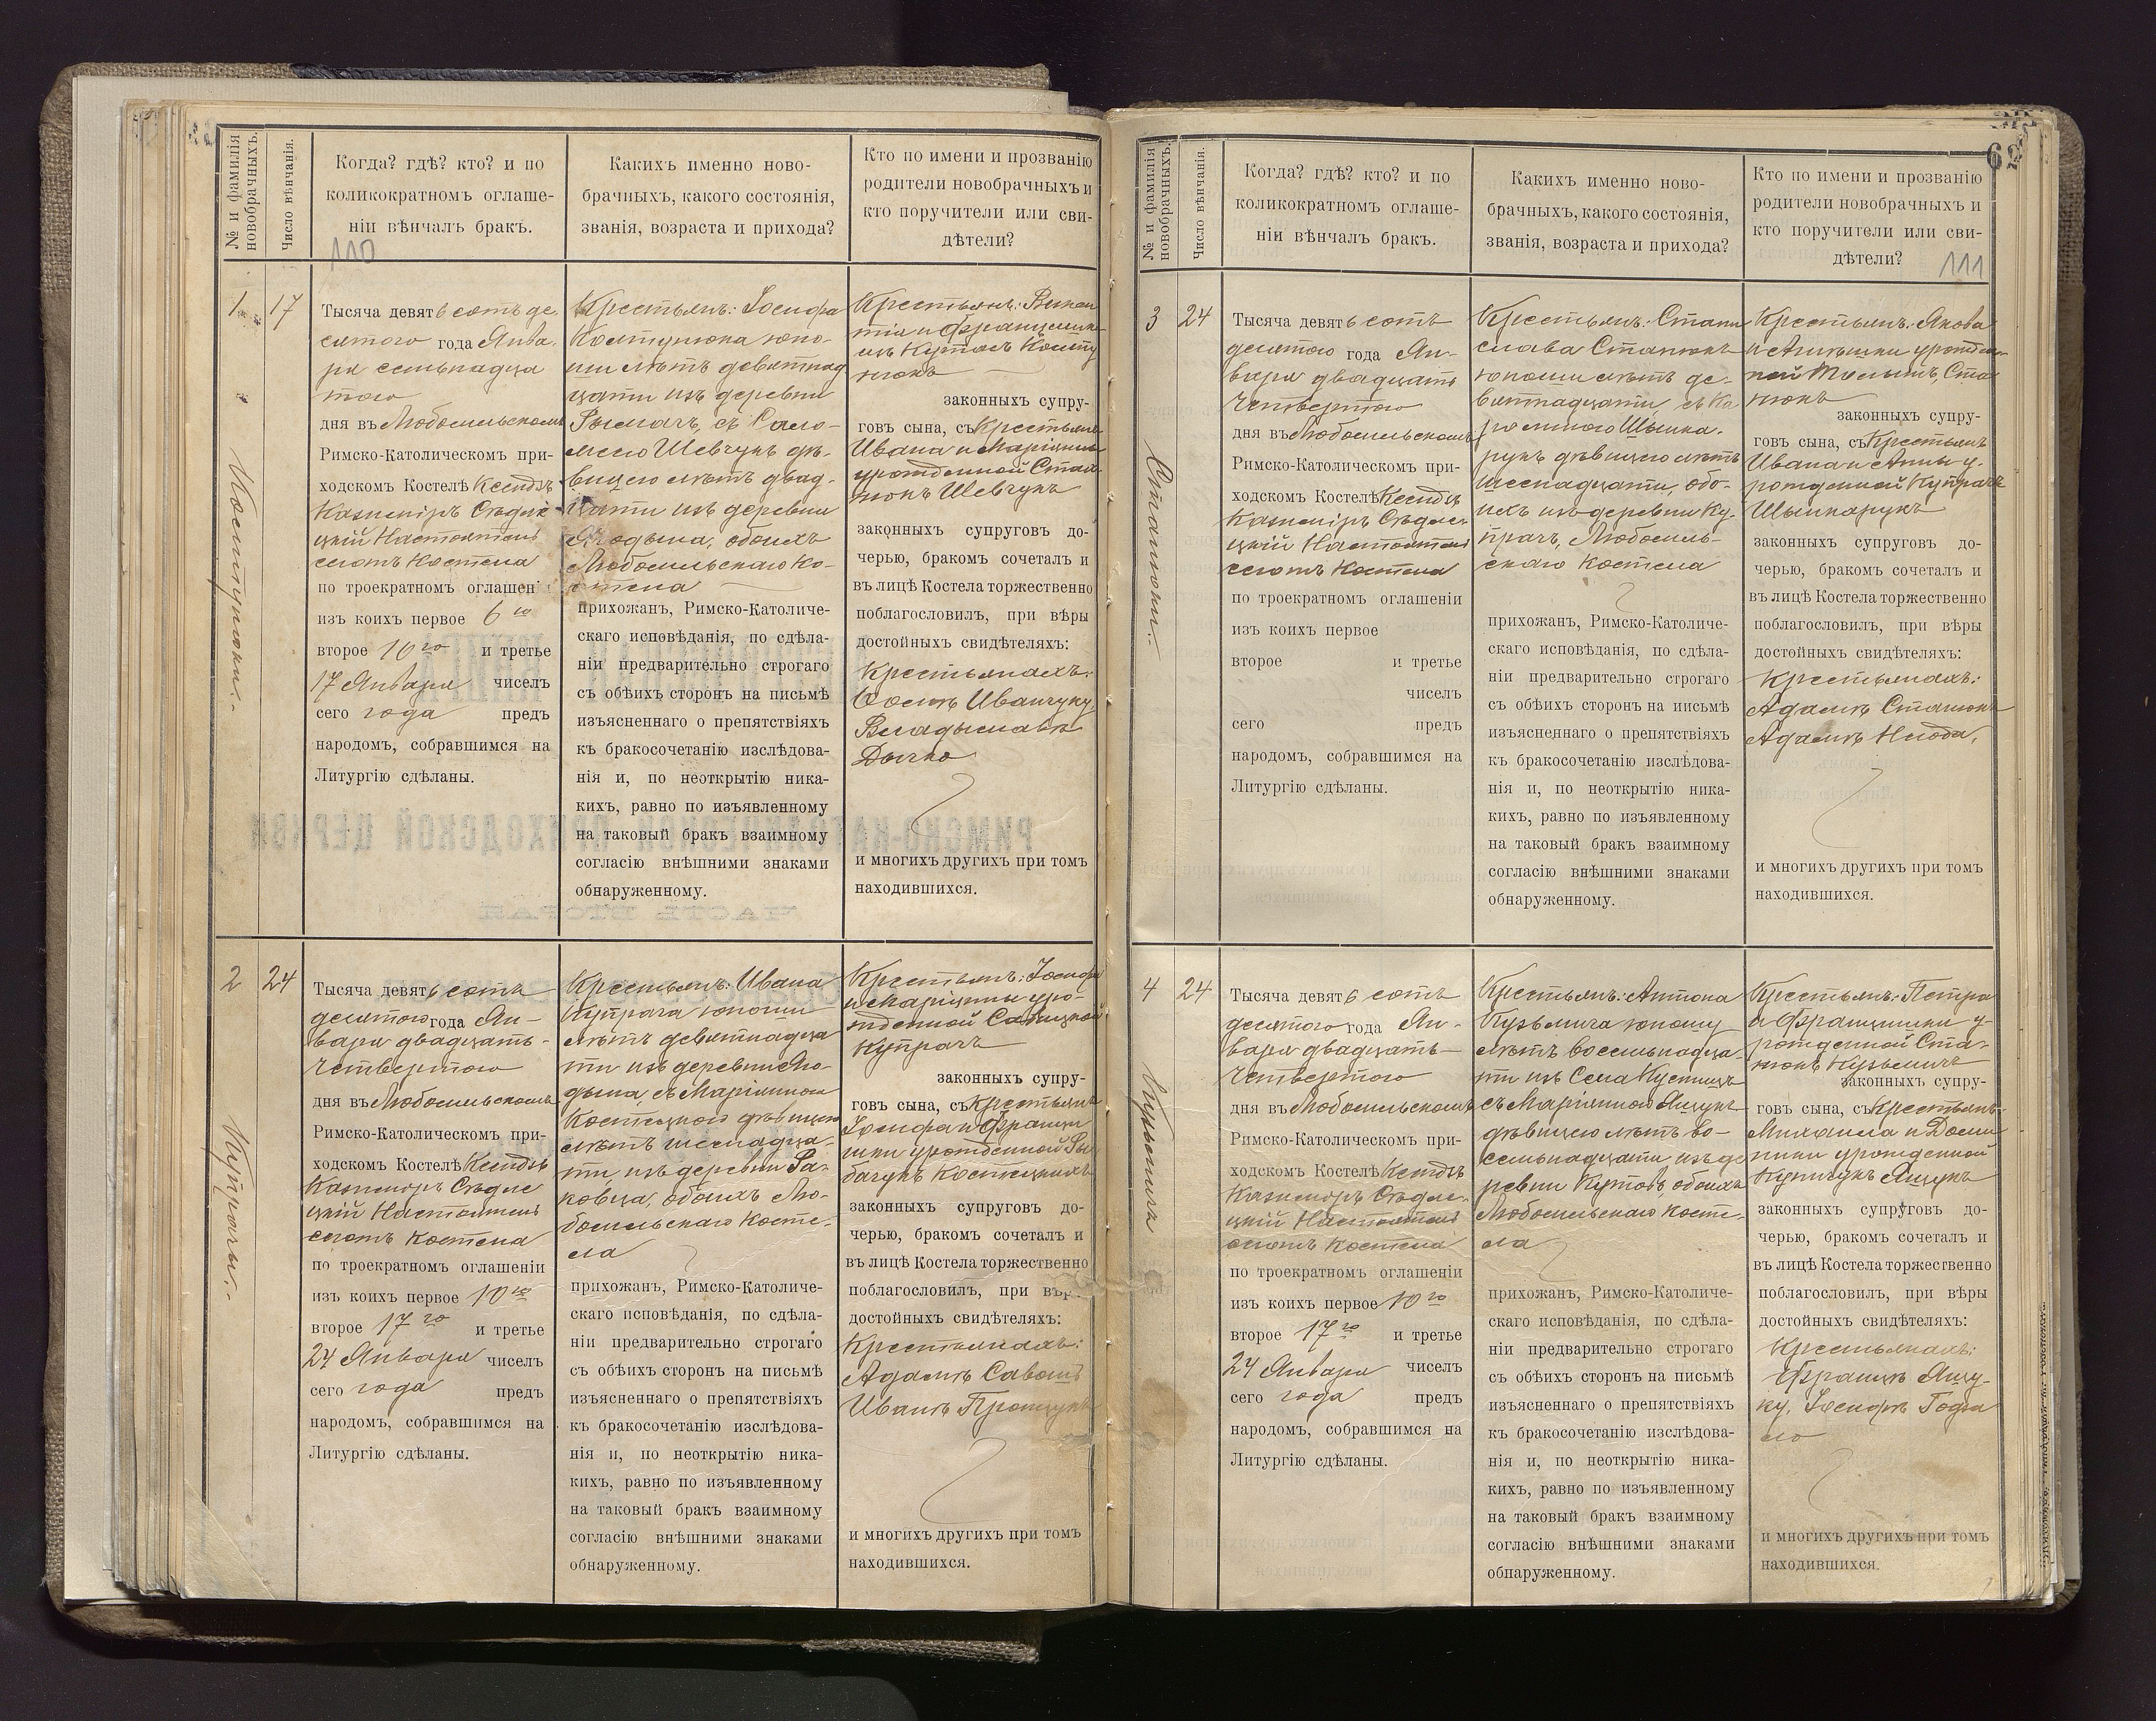 № и фамилія новобрачныхъ.
Число вѣнчанія.
Когда? гдѣ? кто? и по
коликократномъ оглаше-
ніи вѣнчалъ бракъ.
110
Какихъ именно ново-
брачныхъ, какого состоянія,
званія, возраста и прихода?
Кто по имени и прозванію
родители новобрачныхъ и
кто поручители или сви-
дѣтели?
1
17
Тысяча девятьсотъ де-
сятого года Янва-
ря семьнадца
того
дня въ Любомльскомъ
Римско-Католическомъ при-
ходскомъ Костелѣ Ксендзъ
Казимиръ
цкій Настоятель
сего Костела
по троекратномъ оглашеніи
изъ коихъ первое 6го
второе 10го и третье
17 Января чиселъ
сего года предъ
народомъ, собравшимся на
Литургію сдѣланы.
Крестьянъ: Іосифа
Костунюка юно-
ши лѣтъ девятнад
цати изъ деревни
Рымачъ, съ Сало-
меею Шевчукъ дѣ-
вицею лѣтъ двад-
цати изъ деревни
Ягодына, обоихъ
Любомльскаго Ко-
стела
прихожанъ, Римско-Католиче-
скаго исповѣданія, по сдѣла-
ніи предварительно строгаго
съ обѣихъ сторонъ на письмѣ
изъясненнаго о препятствіяхъ
къ бракосочетанію изслѣдова-
нія и, по неоткрытію ника-
кихъ, равно по изъявленному
на таковый бракъ взаимному
согласію внѣшними знаками
обнаруженному.
Крестьянъ: Викен
тія и Францишки
изъ
законныхъ супру-
говъ сына, съ Крестьянъ
Ивана и Маріанны
урожденной
Шевчукъ
законныхъ супруговъ до-
черью, бракомъ сочеталъ и
въ лицѣ Костела торжественно
поблагословилъ, при вѣры
достойныхъ свидѣтеляхъ:
Крестьянахъ:
Иванчуку,
Владыславѣ
Дычко
и многихъ другихъ при томъ
находившихся.
2
24
Купрачъ.
Тысяча девятьсотъ
десятого года Ян-
варя двадцать-
четвертого
дня въ Любомльскомъ
Римско-Католическомъ при-
ходскомъ Костелѣ Ксендзъ
Казимиръ
цкій Настоятель
сего Костела
по троекратномъ оглашеніи
изъ коихъ первое 10го
второе 17го и третье
24 Января чиселъ
сего года предъ
народомъ, собравшимся на
Литургію сдѣланы.
Крестьянъ: Ивана
Купрача юноши
лѣтъ девятнадца
ти изъ деревни Яго-
дына, съ Маріанною
Костецкою дѣвицею
лѣтъ шеснадца-
ти, изъ деревни Ра-
ковца, обоихъ Лю-
бомльскаго Косте-
ла
прихожанъ, Римско-Католиче-
скаго исповѣданія, по сдѣла-
ніи предварительно строгаго
съ обѣихъ сторонъ на письмѣ
изъясненнаго о препятствіяхъ
къ бракосочетанію изслѣдова-
нія и, по неоткрытію ника-
кихъ, равно по изъявленному
на таковый бракъ взаимному
согласію внѣшними знаками
обнаруженному.
Крестьянъ: Іосифа
и Маріанны уро-
жденной Савицкой
Купрачъ
законныхъ супру-
говъ сына, съ Крестьянъ
Іосифа и Францы
шки урожденной Ры
бачукъ Костецкихъ
законныхъ супруговъ до-
черью, бракомъ сочеталъ и
въ лицѣ Костела торжественно
поблагословилъ, при вѣры
достойныхъ свидѣтеляхъ:
Крестьянахъ:
Адамѣ
Иванѣ
и многихъ другихъ при томъ
находившихся.
62
№ и фамилія новобрачныхъ.
Число вѣнчанія.
Когда? гдѣ? кто? и по
коликократномъ оглаше-
ніи вѣнчалъ бракъ.
Какихъ именно ново-
брачныхъ, какого состоянія,
званія, возраста и прихода?
Кто по имени и прозванію
родители новобрачныхъ и
кто поручители или сви-
дѣтели?
111
3
24
Тысяча девятьсотъ
десятого года Ян-
варя двадцать
четвертого
дня въ Любомльскомъ
Римско-Католическомъ при-
ходскомъ Костелѣ Ксендзъ
Казимиръ
цкій Настоятель
сего Костела
по троекратномъ оглашеніи
изъ коихъ первое
второе и третье
чиселъ
сего предъ
народомъ, собравшимся на
Литургію сдѣланы.
Крестьянъ: Стани
слава Станюкъ
юноши лѣтъ де-
вятнадцати, съ Ка
ролиною Шынка-
рукъ дѣвицею лѣтъ
шеснадцати, обо-
ихъ изъ деревни Ку-
прачъ, Любомль-
скаго Костела
прихожанъ, Римско-Католиче-
скаго исповѣданія, по сдѣла-
ніи предварительно строгаго
съ обѣихъ сторонъ на письмѣ
изъясненнаго о препятствіяхъ
къ бракосочетанію изслѣдова-
нія и, по неоткрытію ника-
кихъ, равно по изъявленному
на таковый бракъ взаимному
согласію внѣшними знаками
обнаруженному.
Крестьянъ: Якова
и урожден-
ной Ста
нюкъ
законныхъ супру-
говъ сына, съ Крестьянъ
Ивана и Анны у-
рожденной Купрачъ
Шынкарукъ
законныхъ супруговъ до-
черью, бракомъ сочеталъ и
въ лицѣ Костела торжественно
поблагословилъ, при вѣры
достойныхъ свидѣтеляхъ:
Крестьянахъ:
Адамѣ Станюкъ
Адамѣ
и многихъ другихъ при томъ
находившихся.
4
24
Кузьмичъ
Тысяча девятьсотъ
десятого года Ян-
варя двадцать-
четвертого
дня въ Любомльскомъ
Римско-Католическомъ при-
ходскомъ Костелѣ Ксендзъ
Казимиръ
цкій Настоятель
сего Костела
по троекратномъ оглашеніи
изъ коихъ первое 10го
второе 17го и третье
24 Января чиселъ
сего года предъ
народомъ, собравшимся на
Литургію сдѣланы.
Крестьянъ: Антона
Кузьмича юношу
лѣтъ восемьнадца-
ти изъ Села Куснищъ
съ Маріанною Ящукъ
дѣвицею лѣтъ во-
семьнадцати изъ де
ревни Кутовъ, обоихъ
Любомльскаго Косте-
ла
прихожанъ, Римско-Католиче-
скаго исповѣданія, по сдѣла-
ніи предварительно строгаго
съ обѣихъ сторонъ на письмѣ
изъясненнаго о препятствіяхъ
къ бракосочетанію изслѣдова-
нія и, по неоткрытію ника-
кихъ, равно по изъявленному
на таковый бракъ взаимному
согласію внѣшними знаками
обнаруженному.
Крестьянъ: Петра
и Францишки у-
рожденной Ста-
нюкъ Кузьмичъ
законныхъ супру-
говъ сына, съ Крестьянъ
Михаила и Доми
ники урожденной
Ящукъ
законныхъ супруговъ до-
черью, бракомъ сочеталъ и
въ лицѣ Костела торжественно
поблагословилъ, при вѣры
достойныхъ свидѣтеляхъ:
Крестьянахъ:
Францѣ Ящу-
ку, Іосифѣ
и многихъ другихъ при томъ
находившихся.